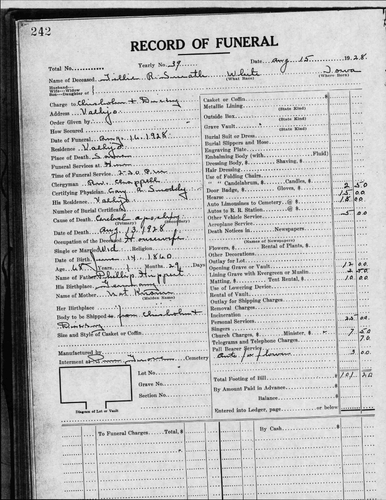 242
RECORD OF FUNERAL
Total No. Yearly No. 39 Date Aug 15 1928
Name of Deceased Tillie R. White Iowa
(What Race) (Where Born)
Husband—
Wife—Widow
Son—Daughter of
Charge to Chisholm &
Address Vallejo
Order Given by
How Secured
Date of Funeral Aug. 16. 1928
Residence Vallejo
Place of Death
Funeral Services at Home
Time of Funeral Services 2-30 P.M.
Clergyman Rev. Chappell
Certifying Physician
His Residence Vallejo
Number of Burial Certificate
Cause of Death Cerebral apoplexy
Date of Death Aug. 13 1928
Occupation of the Deceased Housewife
Single or Married Wid. Religion
Date of Birth June 14. 1860
Age 68 Years; Months; Days
Name of Father Phillip
His Birthplace Germany
Name of Mother Not Known
(Maiden Name)
Her Birthplace
Body to be Shipped to from Chisholm &
Size and Style of Casket or Coffin
Manufactured by
Interment Cemetery
Lot No.
Grave No.
Section No.
Diagram of Lot or Vault
Casket or Coffin
Metallic Lining
(State Kind)
Outside Box
(State Kind)
Grave Vault
(State Kind)
Burial Suit or Dress
Burial Slippers and Hose
Engraving Plate
Embalming Body (with Fluid)
Dressing Body, $ Shaving, $
Hair Dressing
Use of Folding Chairs
" " Candelabrum, $ Candles, $
Door Badge, $ Gloves, $ 2 50
Hearse 15 00
Auto Limousines to Cemetery @ $ 18 00
Autos to R. R. Station @ $
Other Vehicle Service 5 00
Aeroplane Service
Death Notices in Newspapers
(Names of Newspapers)
Flowers, $ Rental of Plants, $
Other Decorations
Outlay for Lot
Opening Grave or Vault 12 00
Lining Grave with Evergreen or Muslin 2 50
Matting, $ Tent Rental, $ 10 00
Use of Lowering Device
Rental of Vault
Outlay for Shipping Charges
Removal Charges
Incineration
Personal Services 25 00
Singers
Church Charges, $ Minister, $ 7 50
Telegrams and Telephone Charges 70
Pall Bearer Service
Auto for flowers 3 00
Total Footing of Bill 101 20
By Amount Paid in Advance
Balance
Entered into Ledger, page or below
To Funeral Charges. Total, $
By Cash $